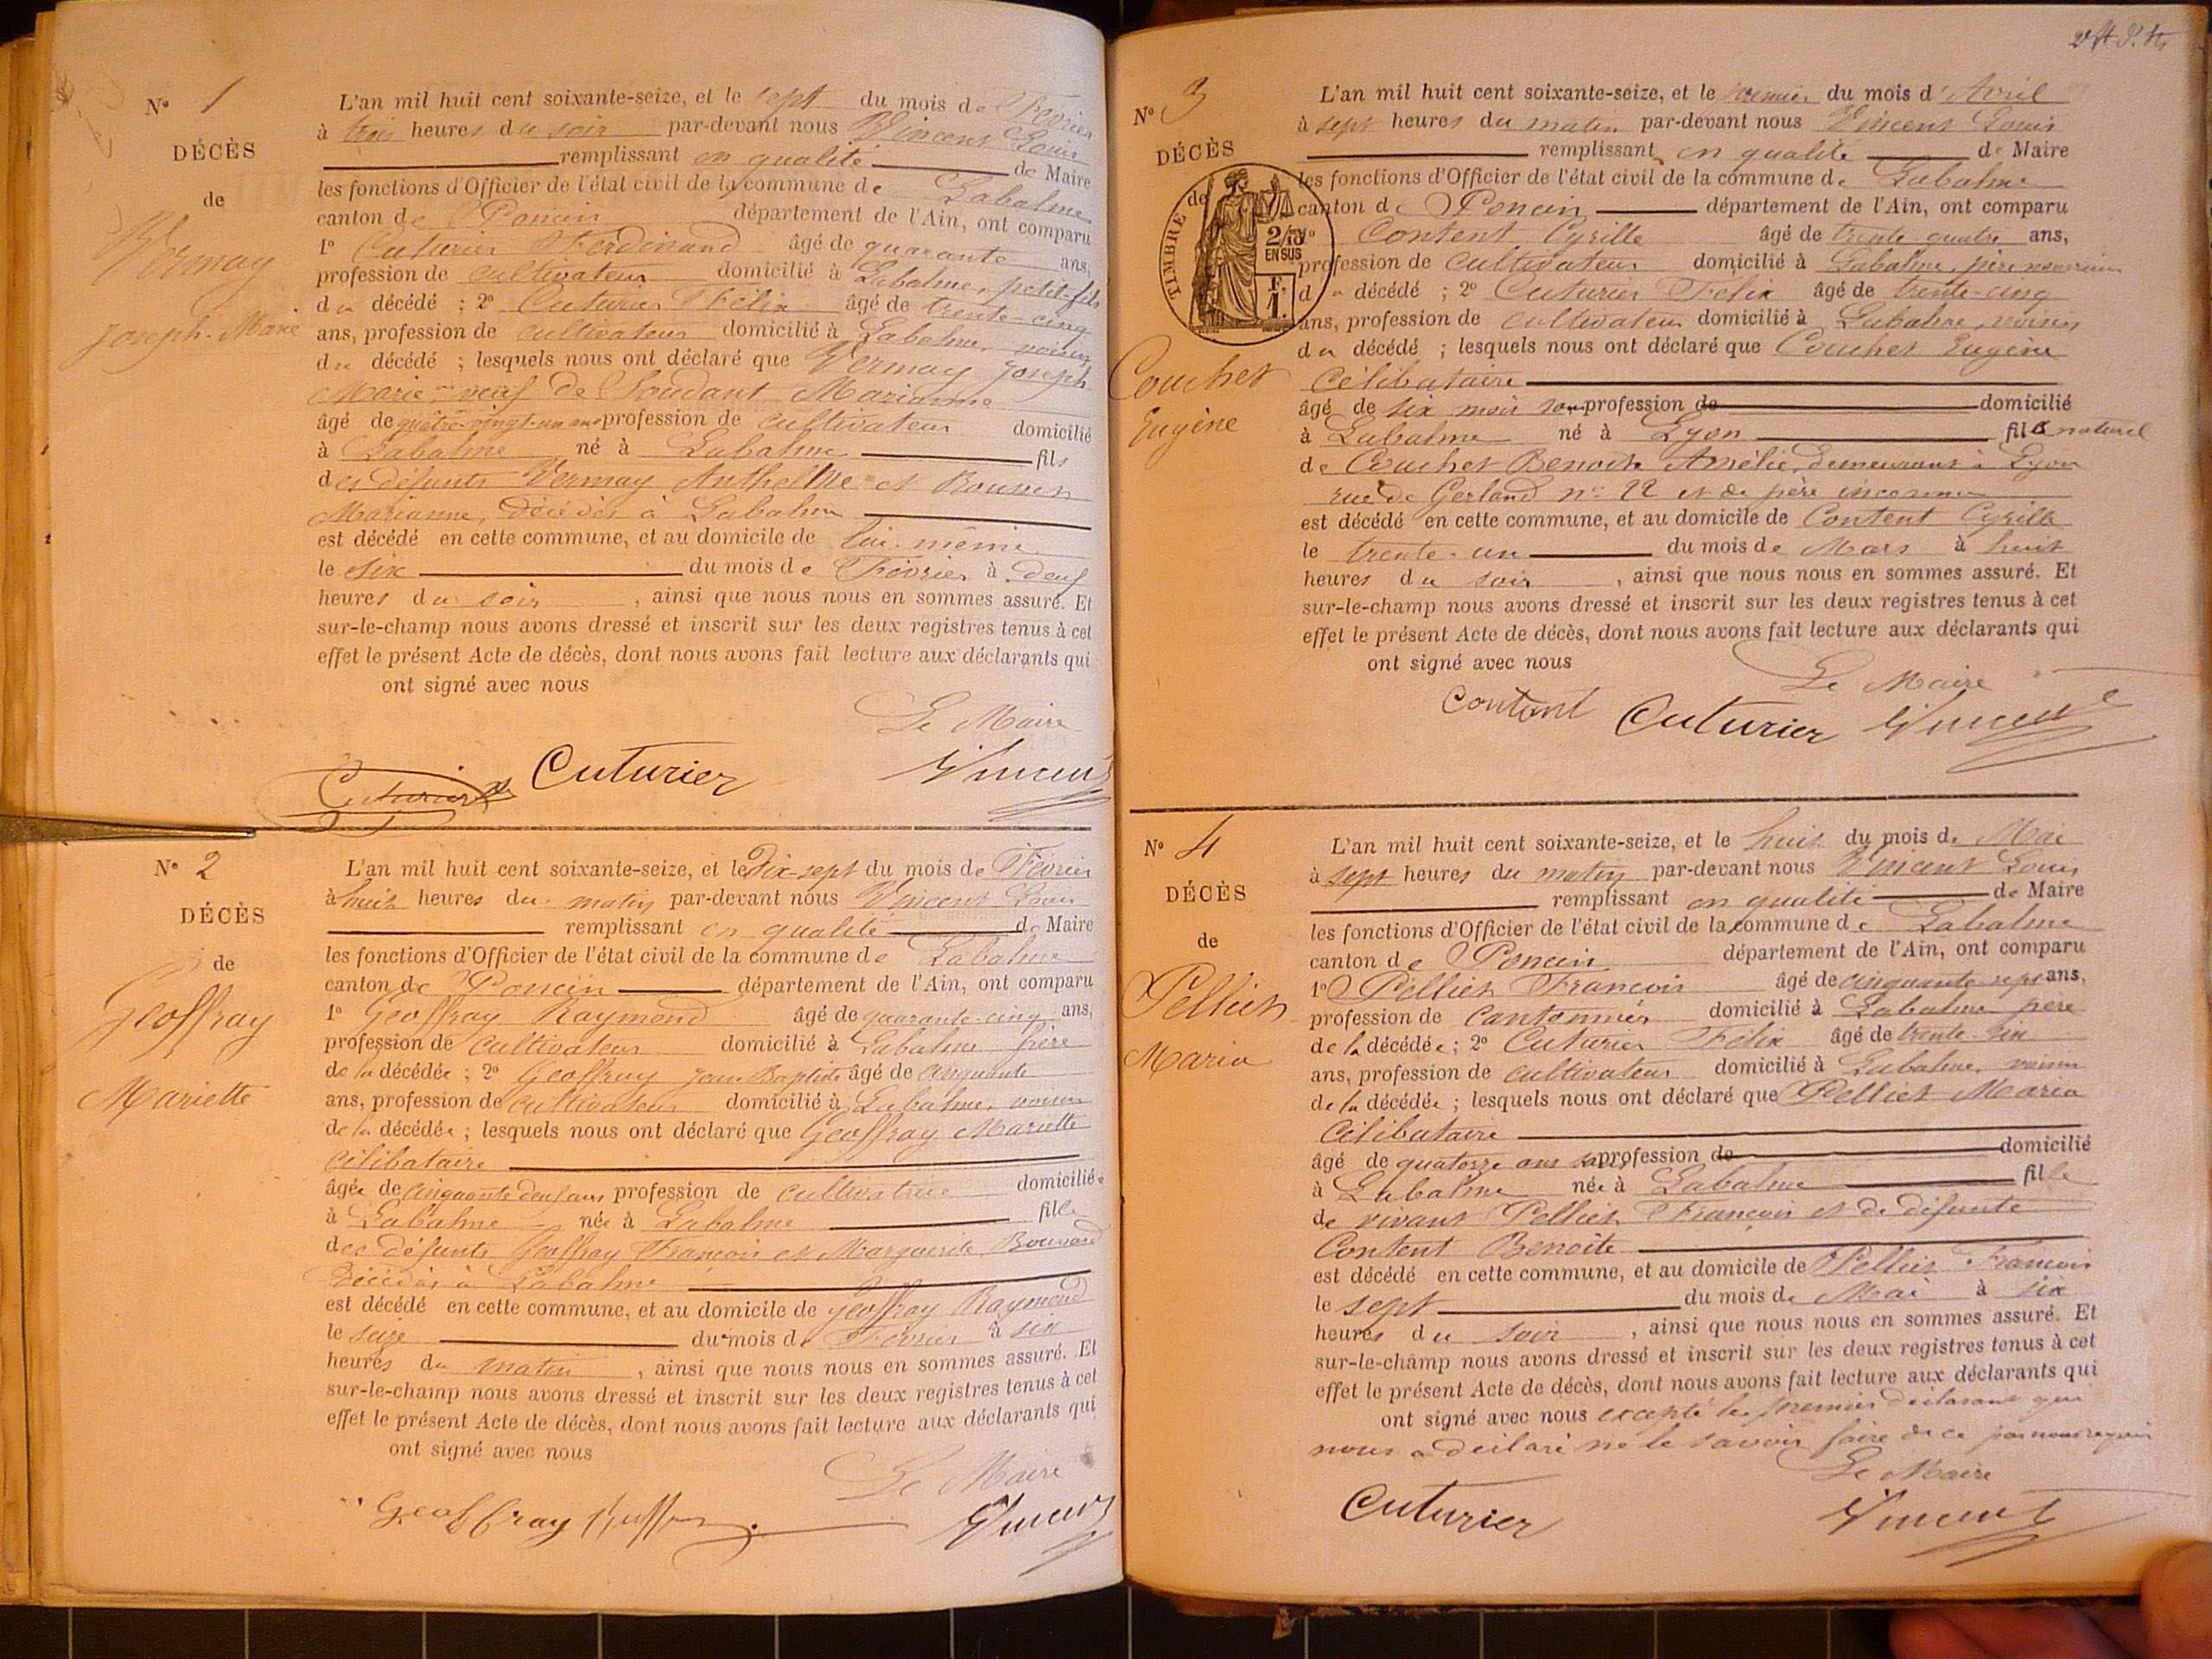 N° 1
DÉCÈS
de
Vermay
Joseph-Marie
L'an mil huit cent soixante-seize, et le sept du mois de Février
à trois heures du soir par-devant nous Vincent Louis
remplissant en qualité de Maire
les fonctions d'Officier de l'état civil de la commune de Labalme
canton de Poncin département de l'Ain, ont comparu
1° Cuturier Ferdinand âgé de quarante ans,
profession de cultivateur domicilié à Labalme, petit-fils
du décédé ; 2° Cuturier Félix âgé de trente-cinq
ans, profession de cultivateur domicilié à Labalme, voisin
du décédé ; lesquels nous ont déclaré que Vermay Joseph
Marie, veuf de Soudant Marianne
âgé de quatre-vingt-un ans profession de cultivateur domicilié
à Labalme né à Labalme fils
des défunts Vermay Anthelme et
Marianne, décédés à Labalme
est décédé en cette commune, et au domicile de lui-même
le six du mois de Février à deux
heures du soir , ainsi que nous nous en sommes assuré. Et
sur-le-champ nous avons dressé et inscrit sur les deux registres tenus à cet
effet le présent Acte de décès, dont nous avons fait lecture aux déclarants qui
ont signé avec nous
Le Maire
Cuturier Cuturier Vincent
N° 2
DÉCÈS
de
Geoffray
Mariette
L'an mil huit cent soixante-seize, et le Dix-sept du mois de Février
à huit heures du matin par-devant nous Vincent Louis
remplissant en qualité de Maire
les fonctions d'Officier de l'état civil de la commune de Labalme
canton de Poncin département de l'Ain, ont comparu
1° Geoffray Raymond âgé de quarante-cinq ans,
profession de cultivateur domicilié à Labalme frère
de la décédée ; 2° Geoffray Jean Baptiste âgé de cinquante
ans, profession de cultivateur domicilié à Labalme, voisin
de la décédée ; lesquels nous ont déclaré que Geoffray Mariette
célibataire
âgée de cinquante deux ans profession de cultivatrice domiciliée
à Labalme née à Labalme fille
des défunts Geoffray François et Marguerite Bouvard
décédés à Labalme
est décédé en cette commune, et au domicile de Geoffray Raymond
le seize du mois de Février à six
heures du matin , ainsi que nous nous en sommes assuré. Et
sur-le-champ nous avons dressé et inscrit sur les deux registres tenus à cet
effet le présent Acte de décès, dont nous avons fait lecture aux déclarants qui
ont signé avec nous
Le Maire
Geoffray Vincent
N° 3
DÉCÈS
de
TIMBRE
2/10
EN SUS
F.
1.
Couchet
Eugène
L'an mil huit cent soixante-seize, et le premier du mois d'Avril
à sept heures du matin par-devant nous Vincent Louis
remplissant en qualité de Maire
les fonctions d'Officier de l'état civil de la commune de Labalme
canton de Poncin département de l'Ain, ont comparu
1° Content Cyrille âgé de trente quatre ans,
profession de cultivateur domicilié à Labalme, père nourricier
du décédé ; 2° Cuturier Félix âgé de trente-cinq
ans, profession de cultivateur domicilié à Labalme, voisin
du décédé ; lesquels nous ont déclaré que Couchet Eugène
célibataire
âgé de six mois sans profession de domicilié
à Labalme né à Lyon fils naturel
de Couchet Benoîte Amélie, demeurant à Lyon
rue de Gerland n° 22 et de père inconnu
est décédé en cette commune, et au domicile de Content Cyrille
le trente-un du mois de Mars à huit
heures du soir , ainsi que nous nous en sommes assuré. Et
sur-le-champ nous avons dressé et inscrit sur les deux registres tenus à cet
effet le présent Acte de décès, dont nous avons fait lecture aux déclarants qui
ont signé avec nous
Le Maire
Content Cuturier Vincent
N° 4
DÉCÈS
de
Pelliet
Maria
L'an mil huit cent soixante-seize, et le huit du mois de Mai
à sept heures du matin par-devant nous Vincent Louis
remplissant en qualité de Maire
les fonctions d'Officier de l'état civil de la commune de Labalme
canton de Poncin département de l'Ain, ont comparu
1° Pelliet François âgé de cinquante-sept ans,
profession de cantonnier domicilié à Labalme père
de la décédée ; 2° Cuturier Félix âgé de trente-six
ans, profession de cultivateur domicilié à Labalme, voisin
de la décédée ; lesquels nous ont déclaré que Pelliet Maria
célibataire
âgé de quatorze ans sans profession de domicilié
à Labalme née à Labalme fille
de vivant Pelliet François et de défunte
Content Benoîte
est décédé en cette commune, et au domicile de Pelliet François
le sept du mois de Mai à six
heures du soir , ainsi que nous nous en sommes assuré. Et
sur-le-champ nous avons dressé et inscrit sur les deux registres tenus à cet
effet le présent Acte de décès, dont nous avons fait lecture aux déclarants qui
ont signé avec nous excepté le premier déclarant qui
nous a déclaré ne le savoir faire de ce par nous requis
Le Maire
Cuturier Vincent